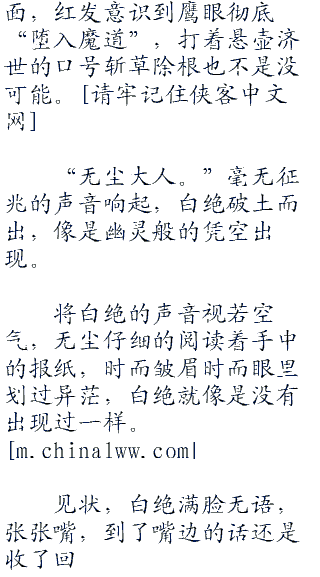 面，红发意识到鹰眼彻底
“堕入魔道”，打着悬壶济
世的口号斩草除根也不是没
可能。[请牢记住侠客中文
网]
“无尘大人。”毫无征
兆的声音响起，白绝破土而
出，像是幽灵般的凭空出
现。
将白绝的声音视若空
气，无尘仔细的阅读着手中
的报纸，时而皱眉时而眼里
划过异茫，白绝就像是没有
出现过一样。
[m.china1ww.com|
见状，白绝满脸无语，
张张嘴，到了嘴边的话还是
收了回